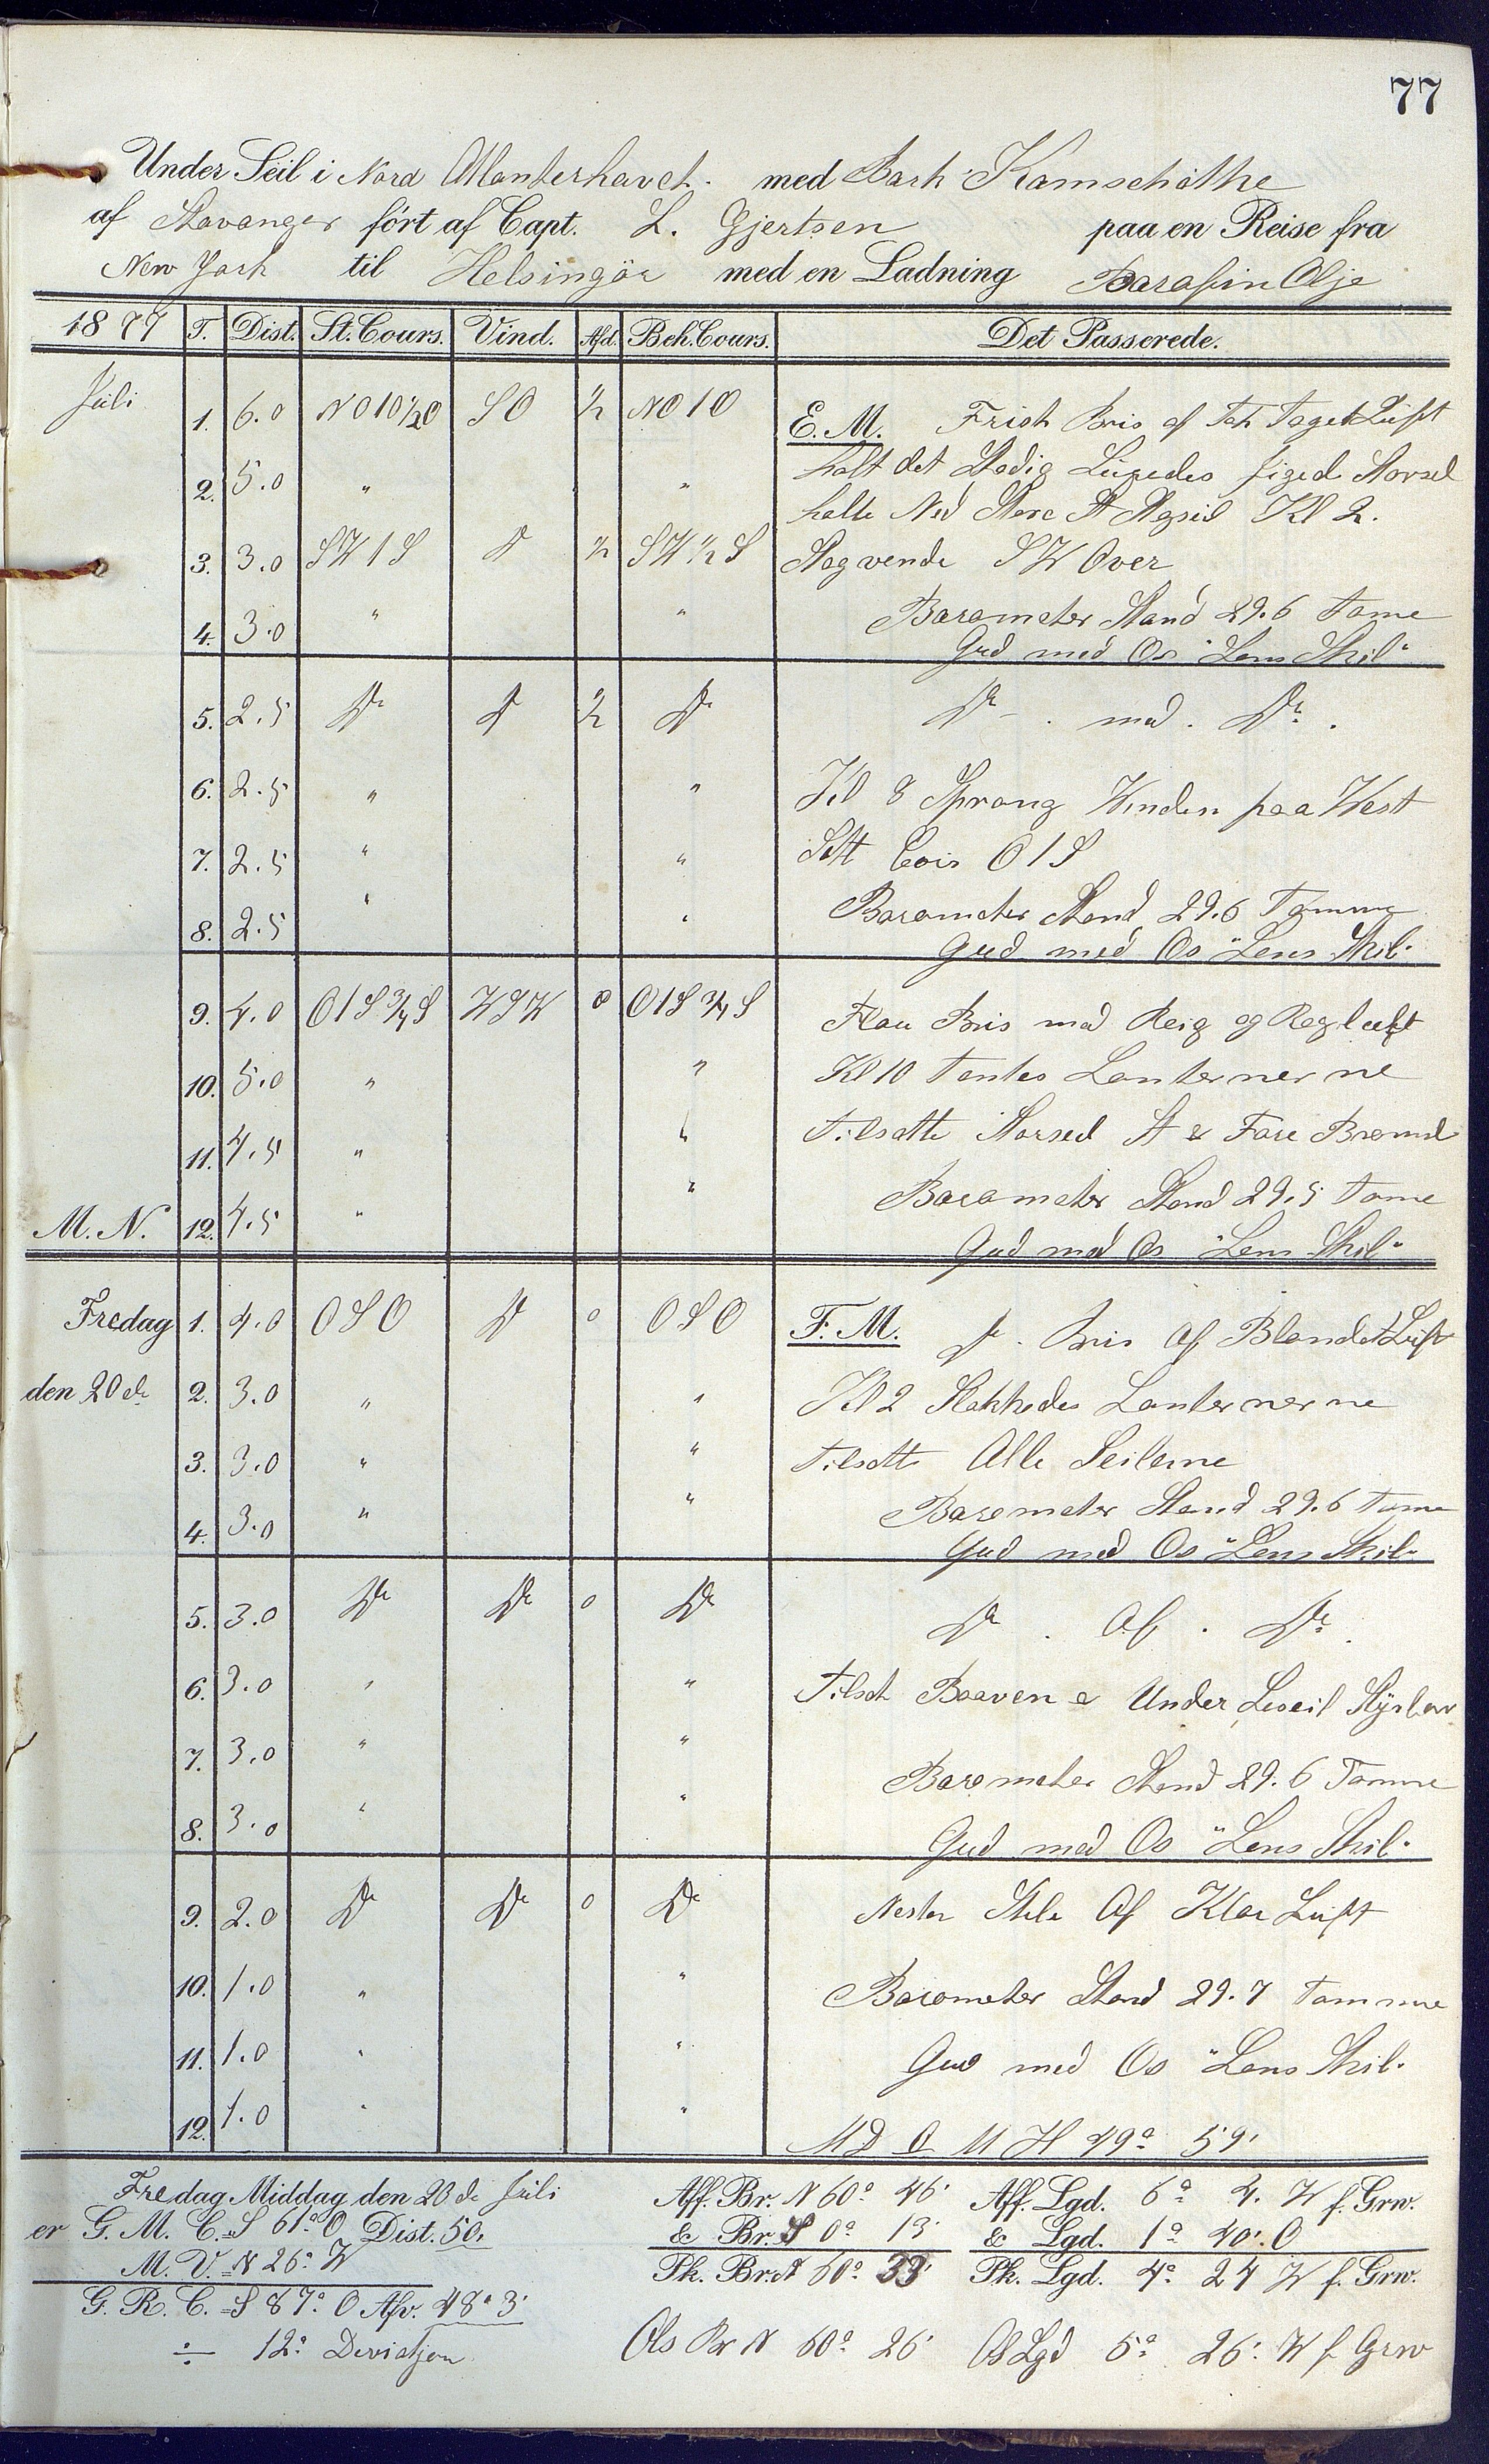 77
Under Seil i Nord Atlanterhavet. med Bark Kamschatke
af Stavanger ført af Capt. L. Gjertsen paa en Reise fra
New York til Helsingör med en Ladning Parafin Olje
1877 T. Dist. St. Cours. Vind. Afd. Beh. Cours. Det Passerede.
Juli 1. 6.0 NO10½O SO ½ NO1O E. M. Frish Bris af Tak Taget Luft
2. 5.0 " " holt det Stadig
halte Ned Kl 2.
3. 3.0 SW1S D ½ SW½S Stagvende SW Over
4. 3.0 " " Barometer Stand 29.6 Tome
Gud med Os "Lens Skib"
5. 2.5 Do D ½ Do Do . med . Do .
6. 2.5 " " Kl 8 Sprang Vinden paa West
7. 2.5 " " Satt Cours O1S
8. 2.5 " " Barometer Stand 29.6 Tomme
Gud med Os "Lens Skib"
9. 4.0 O1S¾S WSW 0 O1S¾S Flau Bris med Reig og Regluft
10. 5.0 " " Kl 10 Tentes Lanternerne
11. 4.5 " " Tilsatte Storseil St & Fore Bramsl
M. N. 12. 4.5 " " Barometer Stand 29.5 Tome
Gud med Os "Lens Skib"
Fredag 1. 4.0 OSO D 0 OSO F. M. D. Bris Af Blandet Luft
den 20de 2. 3.0 " " Kl 2 Slakkedes Lanternerne
3. 3.0 " " Tilsatte Alle Seilene
4. 3.0 " " Barometer Stand 29.6 Tome
Gud med Os "Lens Skib"
5. 3.0 Do Do 0 Do Do . Af . Do .
6. 3.0 " " Tilsat Baaven & Under Leseil Styrbor
7. 3.0 " " Barometer Stand 29.6 Tomme
8. 3.0 " " Gud med Os "Lens Skib"
9. 2.0 Do Do 0 Do Nesten Stele Af Klar Luft
10. 1.0 " " Barometer Stand 29.7 Tomme
11. 1.0 " " Gud med Os "Lens Skib"
12. 1.0 " " M D O M H 49° 59'
Fredag Middag den 20de Juli Aff. Br. N 60° 46' Aff. Lgd. 6° 4. W f. Grw.
er G. M. C. = S 61° O Dist. 50. & Br. S 0° 13' & Lgd. 1° 40'. O
M. V. = N 26° W Pk. Br. N 60° 33' Pk. Lgd. 4° 24 W f. Grw.
G. R. C. = S 87° O Afv. 48° 3'
÷ 12° Deviatjon Obs Br N 60° 26' Obs Lgd 5° 26' W f Grw